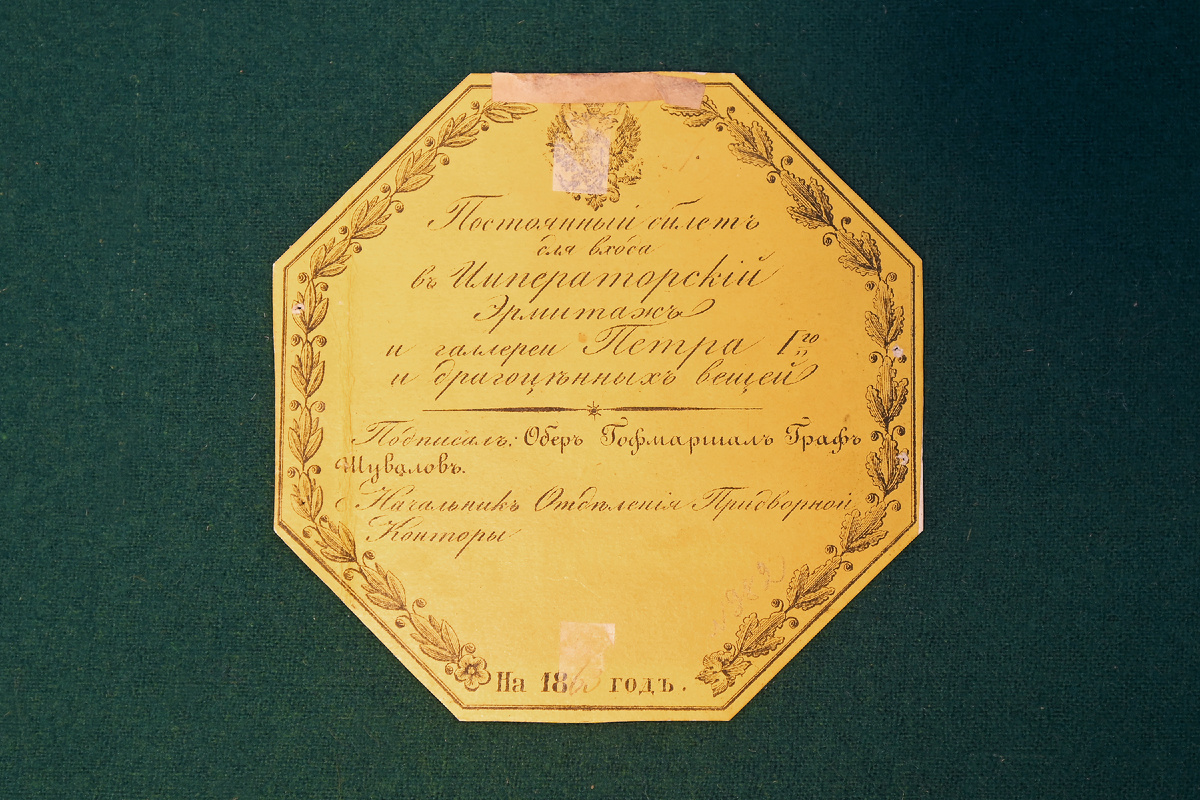 Постоянный билетъ
для входа
въ Императорскій
Эрмитажъ
и галлереи Петра Iго
и драгоцѣнныхъ вещей
Подписалъ: Оберъ Гофмаршалъ Графъ
Шуваловъ.
Начальникъ Отдѣленія Придворной
Конторы
На 1863 годъ.